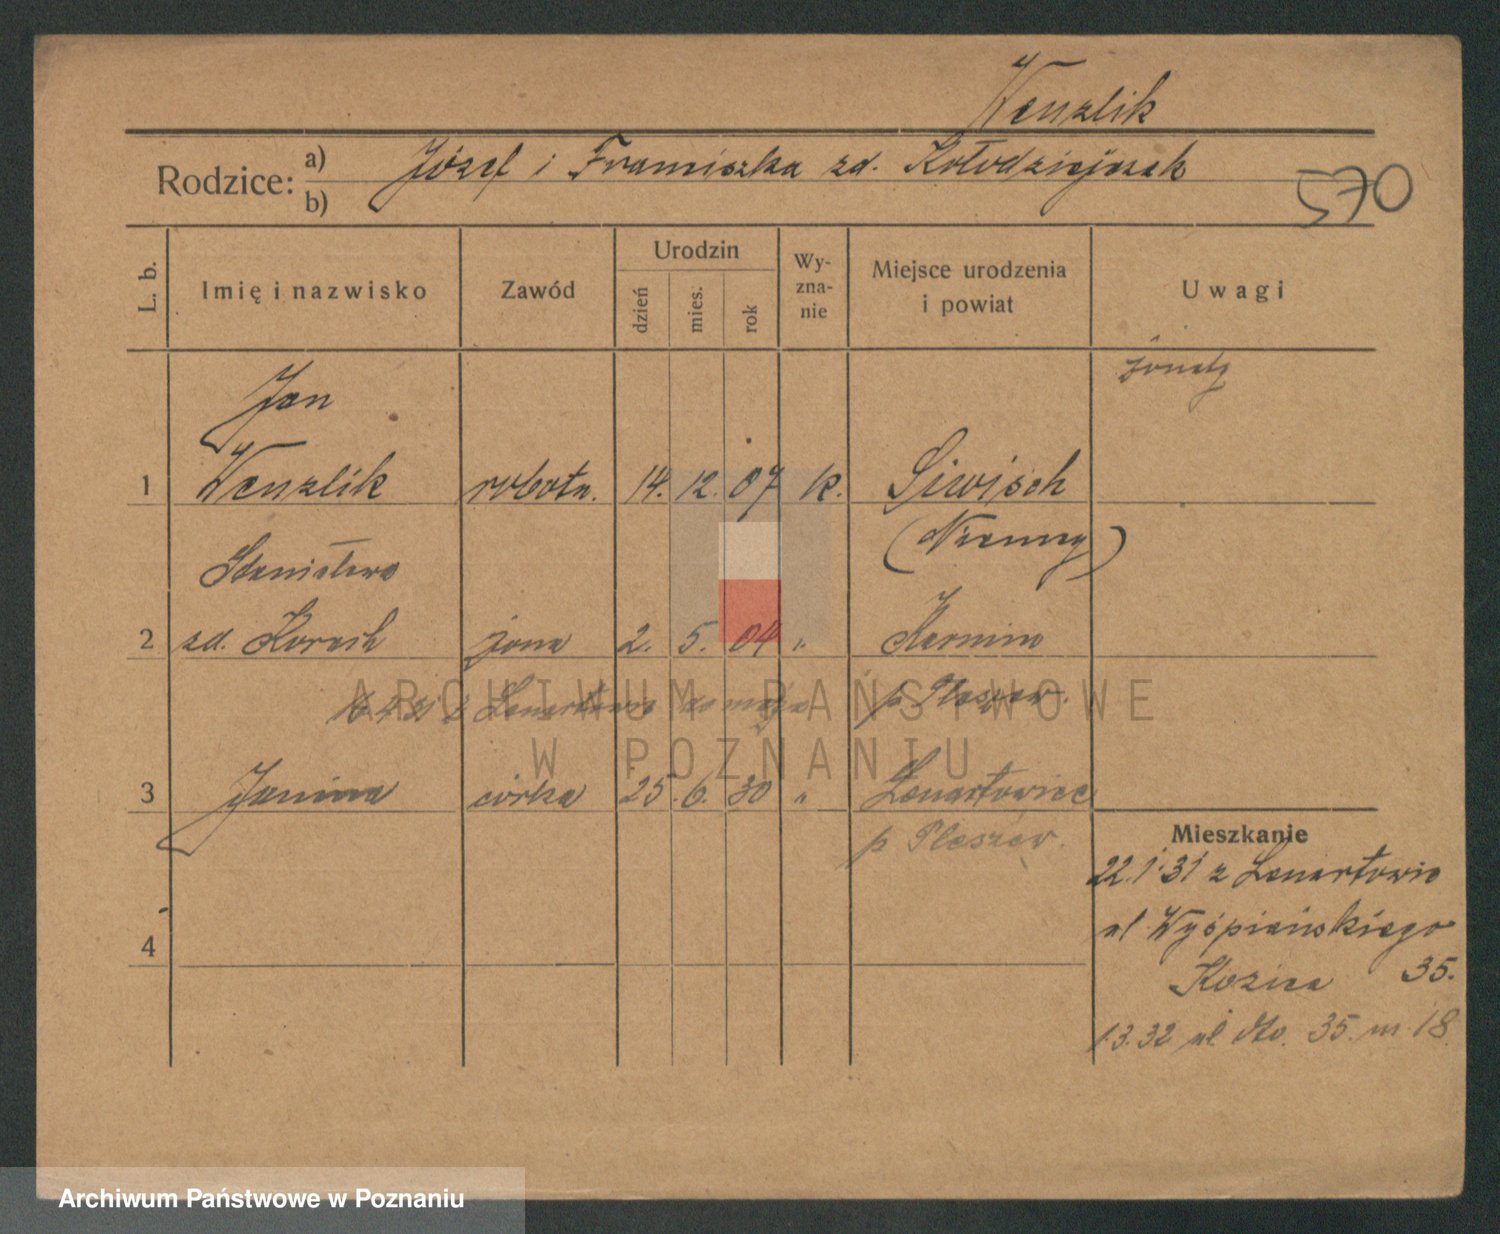 Wenzlik
Rodzice: a) Józef i Franciszka zd. Kołodziejczak
b)
570
L. b. Imię i nazwisko Zawód Urodzin dzień mies. rok Wyznanie Miejsce urodzenia i powiat Uwagi
żonaty
Jan
1 Wenzlik robotn. 14. 12. 07 k. Siwisch
(Niemcy)
Stanisława
2 zd. żona 2. 5. 04 " Karmin
z Lenartowic p Pleszew.
3 Janina córka 25. 6. 30 " Lenartowice
p Pleszew.
Mieszkanie
22.1.31 z Lenartowic
ul Wyspiańskiego
4
35.
1.3.32 ul dto. 35. m. 18
ARCHIWUM PAŃSTWOWE
W POZNANIU
Archiwum Państwowe w Poznaniu